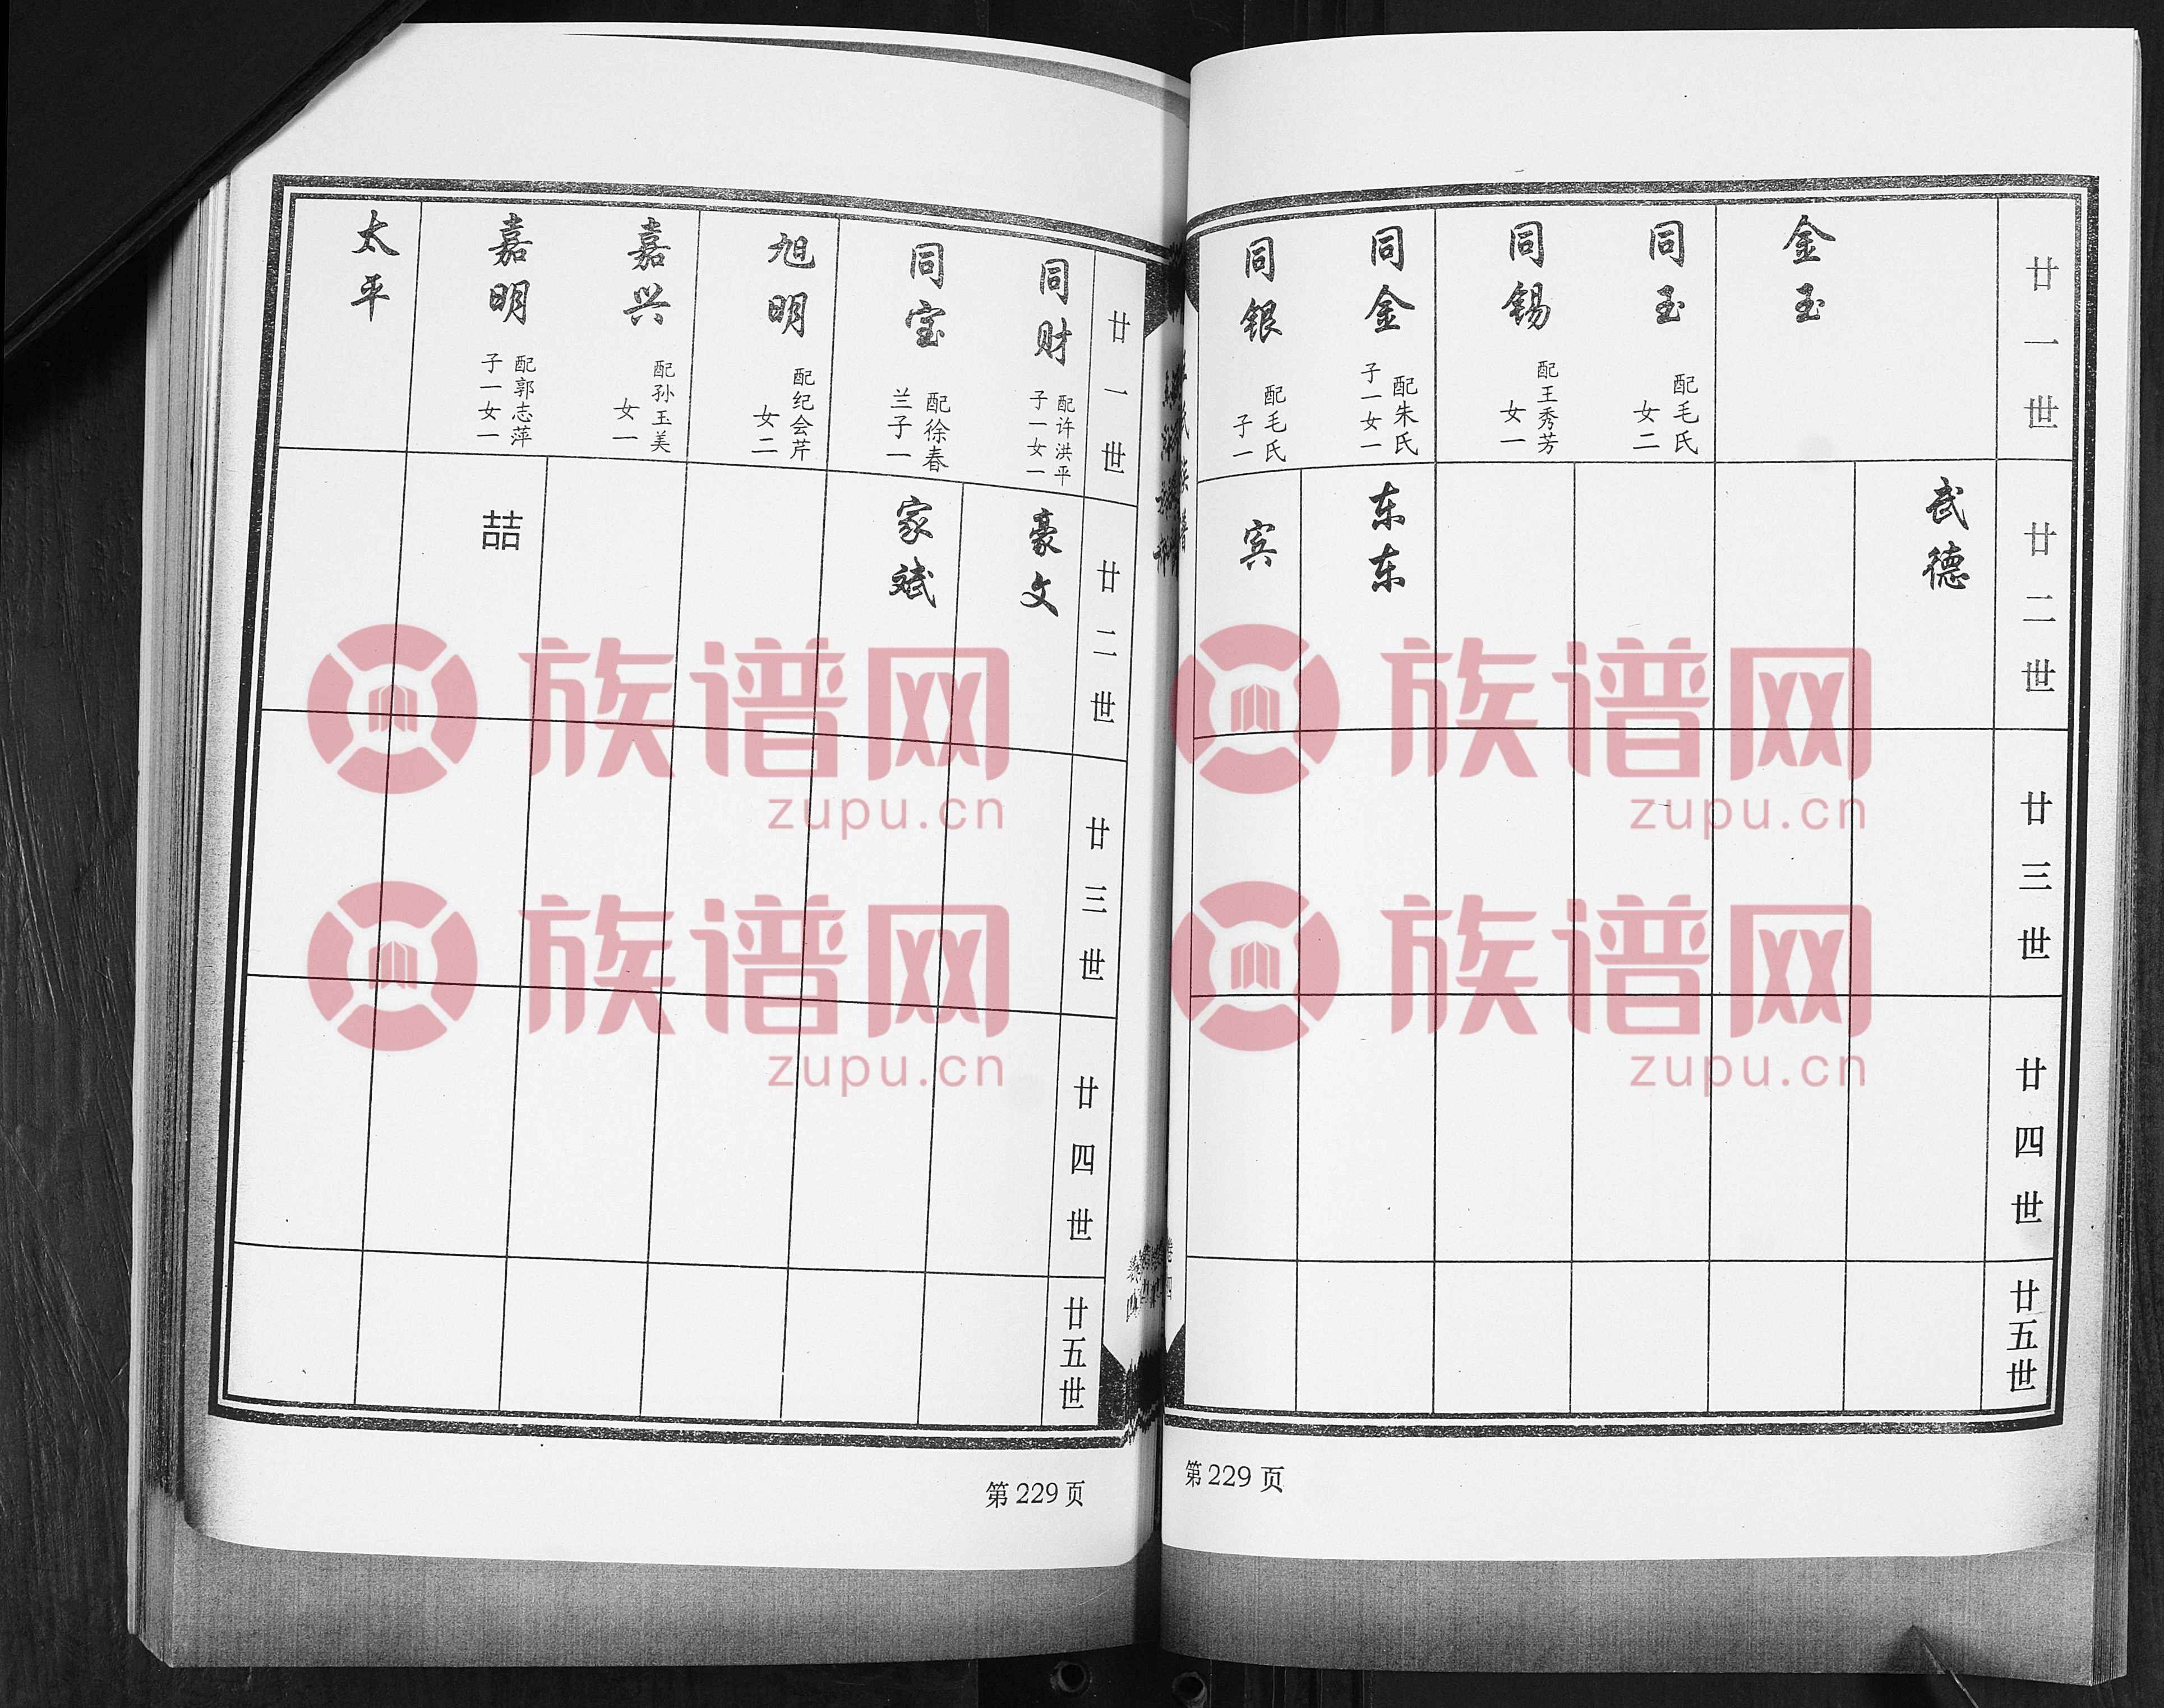 廿一世
金玉
同玉
配毛氏
女二
同锡
配王秀芳
女一
同金
配朱氏
子一女一
同银
配毛氏
子一
廿二世
武德
东东
宾
廿三世
廿四世
廿五世
第229页
廿一世
同财
配许洪平
子一女一
同宝
配徐春
兰子一
旭明
配纪会芹
女二
嘉兴
配孙玉美
女一
嘉明
配郭志萍
子一女一
太平
廿二世
豪文
家斌
喆
廿三世
廿四世
廿五世
第229页
族谱网
zupu.cn
族谱网
zupu.cn
族谱网
zupu.cn
族谱网
zupu.cn